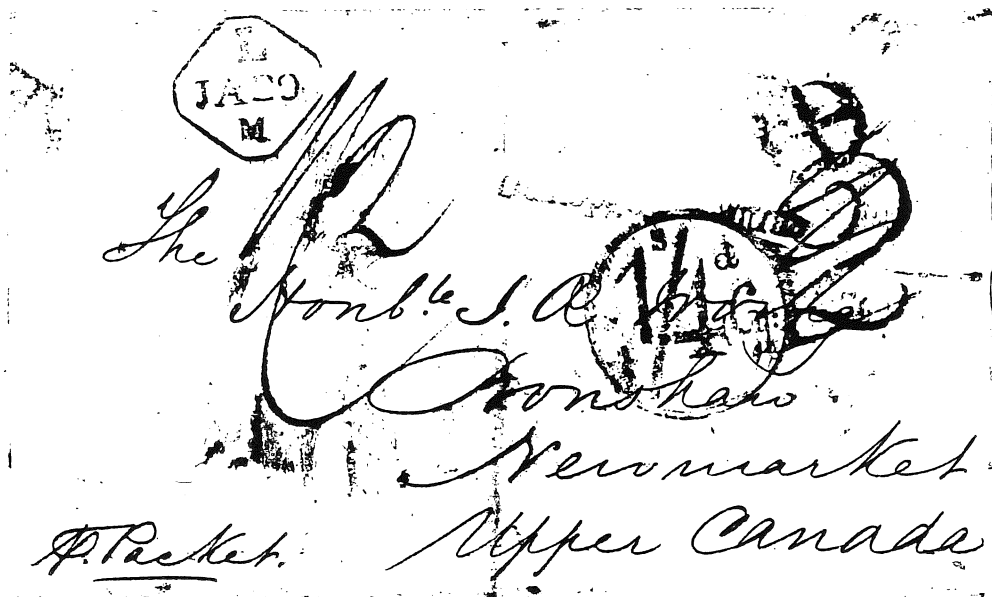 L
JA20
M
The
Honble J. A.
s d
1/4
Newmarket
Upper Canada
P. Packet.